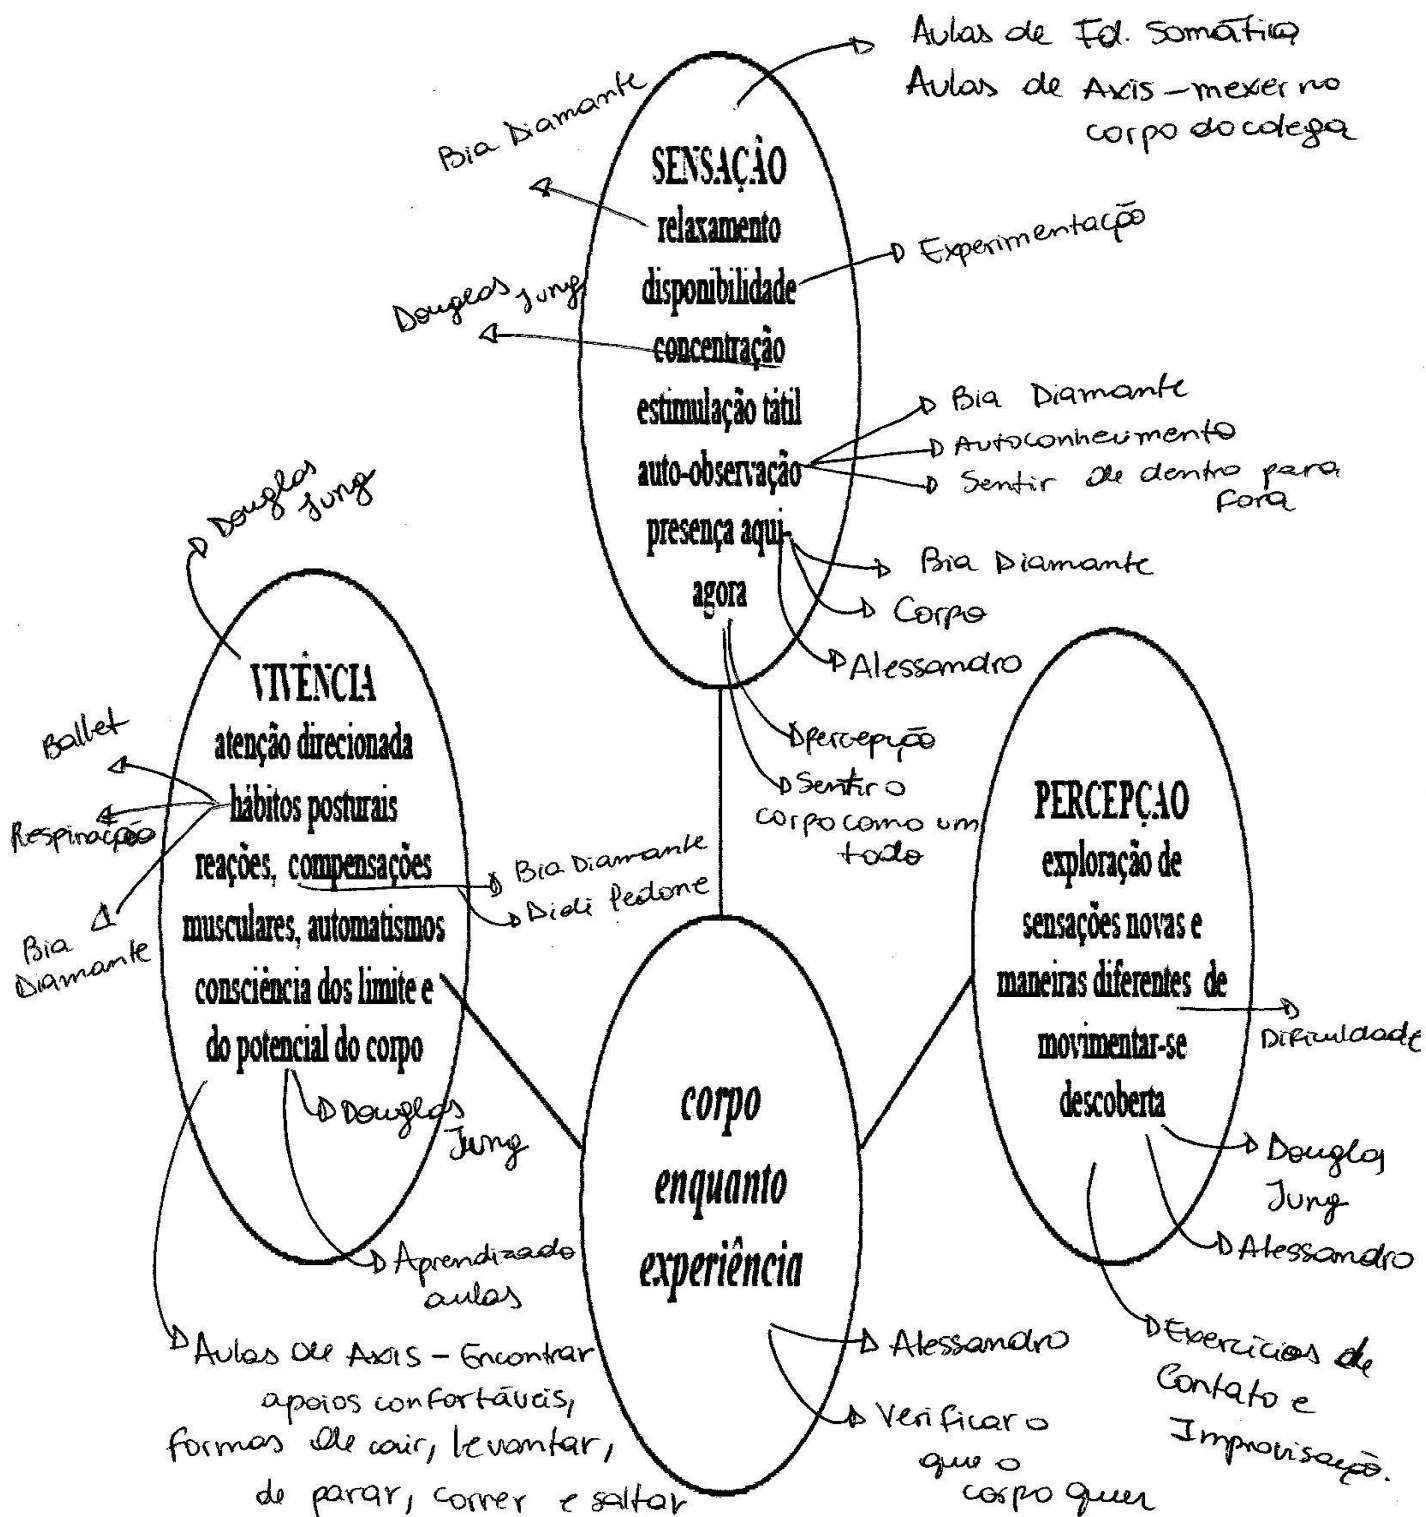 Aulas de Ed. Somática
Aulas de Axis - mexer no
corpo do colega
Bia Diamante
SENSAÇÃO
relaxamento
disponibilidade
concentração
estimulação tátil
auto-observação
presença aqui-
agora
Experimentação
Douglas Jung
Bia Diamante
Autoconhecimento
Sentir de dentro para
fora
Bia Diamante
Corpo
Alessandro
percepção
Sentir o
corpo como um
todo
Douglas
Jung
VIVÊNCIA
atenção direcionada
hábitos posturais
reações, compensações
musculares, automatismos
consciência dos limite e
do potencial do corpo
Ballet
Respiração
Bia
Diamante
Bia Diamante
Didi Pedone
Douglas
Jung
Aprendizado
aulas
Aulas de Axis - Encontrar
apoios confortáveis,
formas de cair, levantar,
de parar, correr e saltar
PERCEPÇAO
exploração de
sensações novas e
maneiras diferentes de
movimentar-se
descoberta
Dificuldade
Douglas
Jung
Alessandro
Exercícios de
Contato e
Improvisação.
corpo
enquanto
experiência
Alessandro
Verificar o
que o
corpo quer